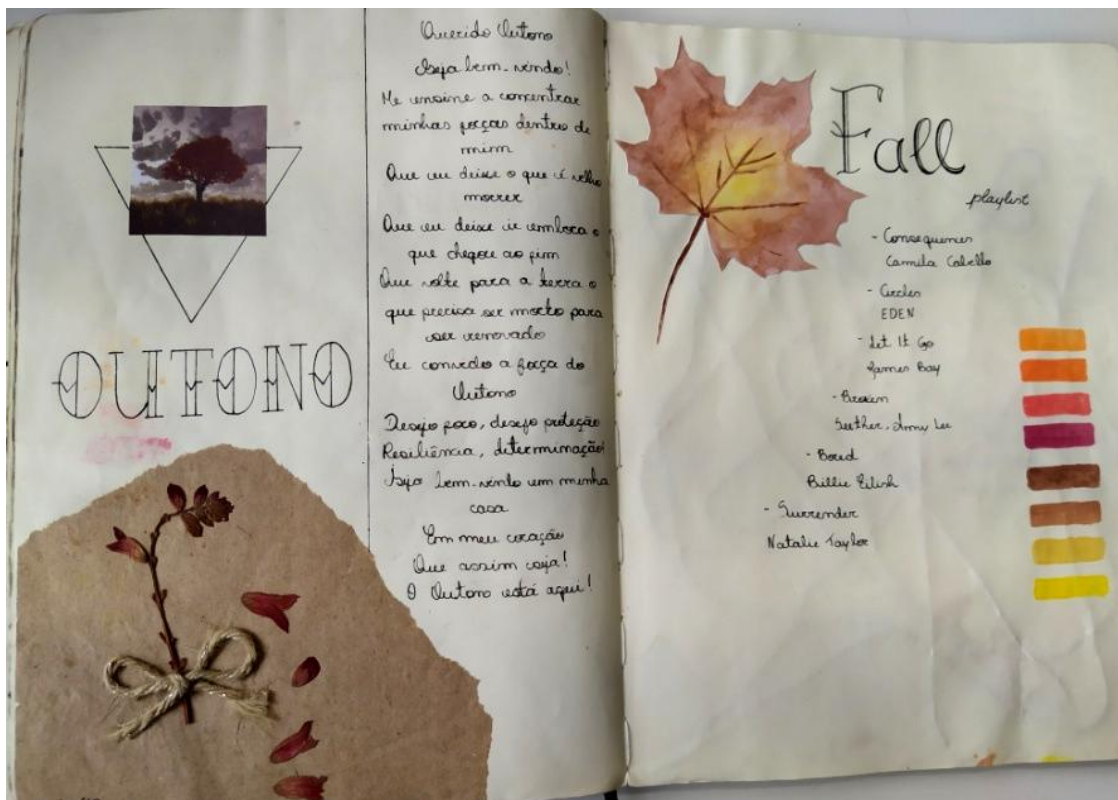 OUTONO
Querido Outono
Seja bem-vindo!
Me ensine a concentrar
minhas forças dentro de
mim
Que eu deixe o que é velho
morrer
Que eu deixe ir embora o
que chegou ao fim
Que volte para a terra o
que precisa ser morto para
ser renovado
Eu convido a força do
Outono
Desejo foco, desejo proteção
Resiliência, determinação!
Seja bem-vindo em minha
casa
Em meu coração
Que assim seja!
O Outono está aqui!
Fall
playlist
- Consequences
Camila Cabello
- Circles
EDEN
- Let It Go
James Bay
- Broken
Seether, Amy Lee
- Bored
Billie Eilish
- Surrender
Natalie Taylor